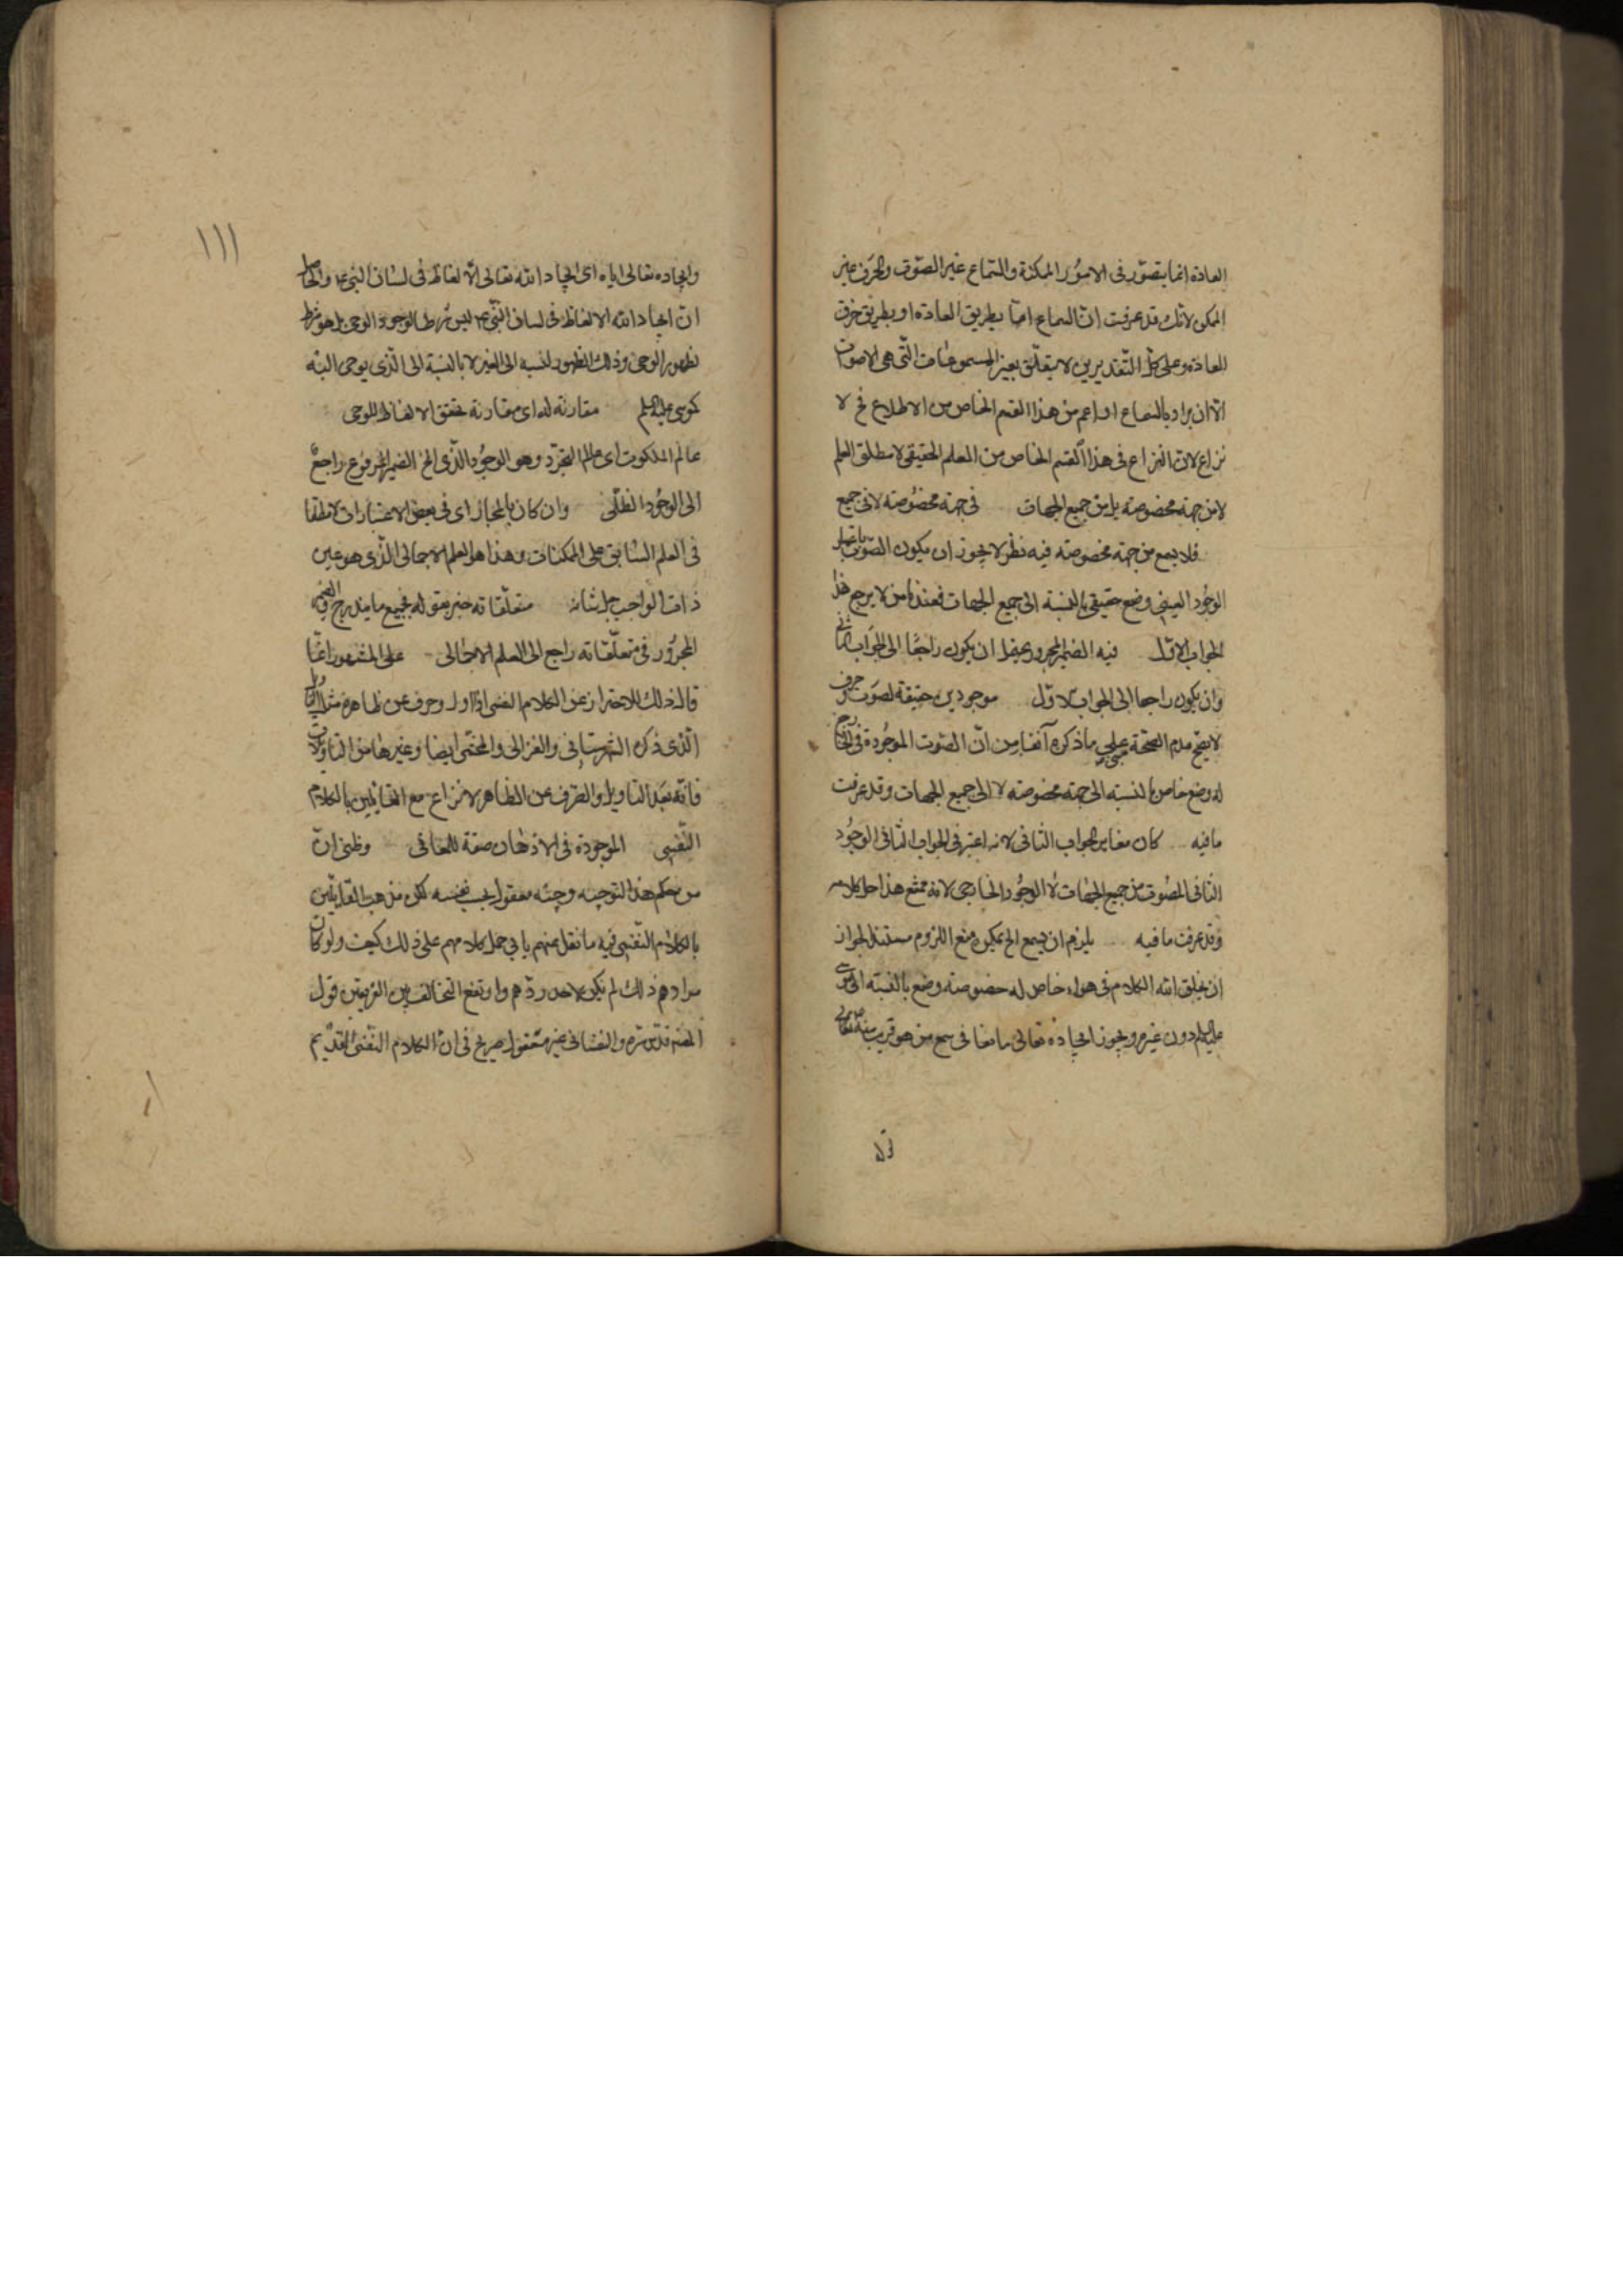 العادة انما يتصوّر فى الامور الممكنة والسّماع غير الصّوت والحرف غير
الممكن لانّك قد عرفت انّ السماع امّا بطريق العادة او بطريق خرق
العادة وعلى كلّ التّقديرين لا يتعلّق بغير المسموعات الّتى هى الاصوات
الّا ان يراد بالسماع اعم من هذا القسم الخاص من الاطلاع فح لا
نزاع لانّ النزاع فى هذا القسم الخاص من العلم الحقيقى لا مطلق العلم
لا من جهة مخصوصة بل من جميع الجهات فى جهة مخصوصة لا فى جميع
فلا يسمع من جهة مخصوصة فيه نظر لا يجوز ان يكون الصّوت باعتبار
الوجود العينى وضع حقيقى بالنسبة الى جميع الجهات فعند لا يرجع هذا
الجواب الاوّل فيه الضمير المجرور يحتمل ان يكون راجعًا الى الجواب الثانى
وان يكون راجعا الى الجواب الاوّل موجودين حقيقة لصوت وحرف
لا يصحّ عدم الصحّة مبنى على ما ذكره آنفا من انّ الصّوت الموجودة فى الخارج
له وضع خاص بالنسبة الى جهة مخصوصة لا الى جميع الجهات وقد عرفت
ما فيه كان مغاير الجواب الثانى لانه اعتبر فى الجواب الثانى الوجود
الثانى للصّوت من جميع الجهات لا الوجود الخارجى لانه ممتنع هذا حاصل كلامه
وقد عرفت ما فيه يلزم ان يسمع الخ يمكن منع اللزوم مستند الجواز
ان يخلق الله الكلام فى هواء خاص له خصوصية وضع بالنسبة الى موسى
عليه السلم دون غيره ويجوز ايجاده تعالى مانعا فى سمع من هو قريب منه
قوله
١١١
وايجاده تعالى اياه اى ايجاد الله تعالى الالفاظ فى لسان النبى ع والحاصل
انّ ايجاد الله الالفاظ فى لسان النّبى ع ليس شرطا لوجود الوحى بل هو شرط
لظهور الوحى وذلك الظهور بالنسبة الى الغير لا بالنسبة الى الّذى يوحى اليه
كموسى عليه السلم مقارنة له اى مقارنة تحقق الالفاظ للوحى
عالم الملكوت اى عالم التجرّد وهو الوجود الّذى الخ الضمير المرفوع راجعٌ
الى الوجود الظلّى وان كان بالمجاز اى فى بعض الاعتبارات لا مطلقا
فى العلم السّابق على الممكنات وهذا هو العلم الاجمالى الّذى هو عين
ذات الواجب جل شانه متعلّقاته خبر بقوله فجميع ما يندرج فيه والضمير
المجرور فى متعلّقاته راجع الى العلم الاجمالى على المشهور انّما
قال ذلك للاحتراز عن الكلام النفسى اذا اول وصرف عن ظاهره مثل التاويل
الّذى ذكره الشهرستانى والغزالى والمحشّى ايضا وغيرها من التاويلات
فانّه بعد التاويل والصّرف عن الظاهر لا نزاع مع القائلين بالكلام
النّفسى الموجودة فى الاذهان صفة للمعانى وظنى انّ
من هذا التوجيه وجيه معقول بحسب نفسه لكن مذهب القائلين
بالكلام النّفسى فيه ما نقل عنهم يابى حمل كلامهم على ذلك كيف ولو كان
مرادهم ذلك لم يكن لاحد ردّهم وارتفع التخالف بين الفريقين قول
والنفسانى غير معقول صريح فى انّ الكلام النّفسى القديم